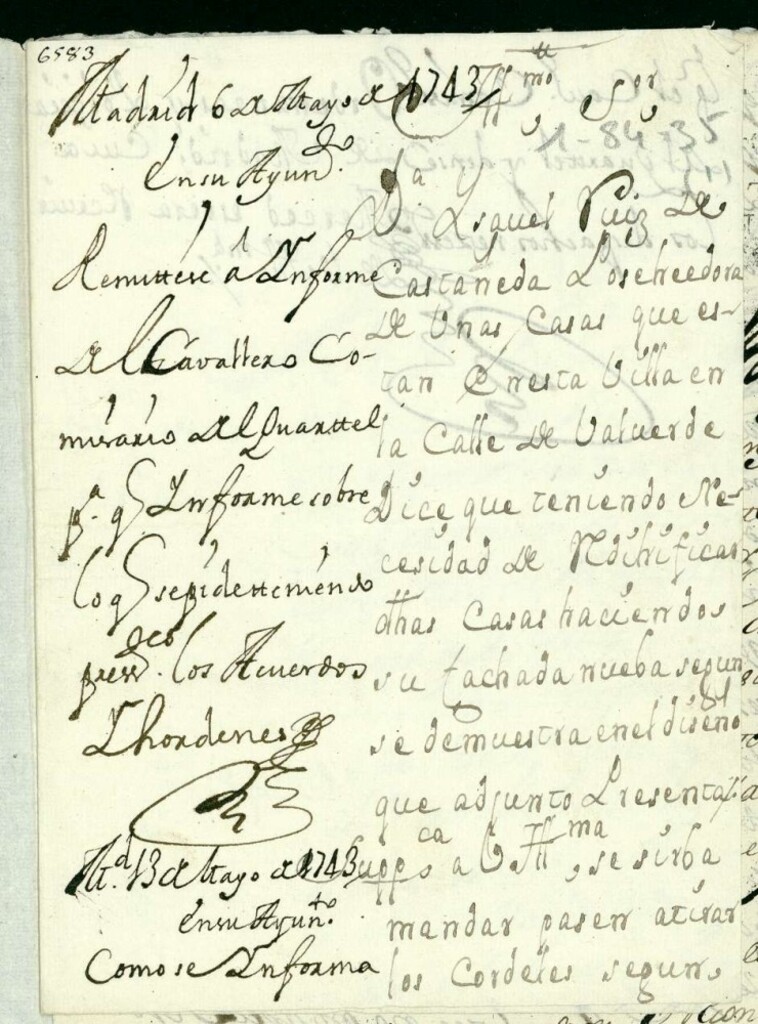 6583
Madrid 6 de Mayo de 1743
En su Ayund.to
Remittese al Informe
del Cavallero Co-
misario del Quarttel
p.a q Informe sobre
lo q se pide tteniendo
press.do los Acuerdos
Y hordenes
M.d 13 de Mayo de 1743
En su Ayun.to
Como se Informa
Yll.mo S.or
D.a Ysavel Ruiz de
Castañeda Poseheedora
de Unas Casas que es-
tan En esta Villa en
la Calle de Valverde
Dice que teniendo Ne-
cesidad de Rdihificar
dhas Casas haciendo
su fachada nueba segun
se demuestra en el diseño
que adjunto Presenta
Supp.ca a V. Yll.ma se sirba
mandar pasen a tirar
los Cordeles segun
1-84-35